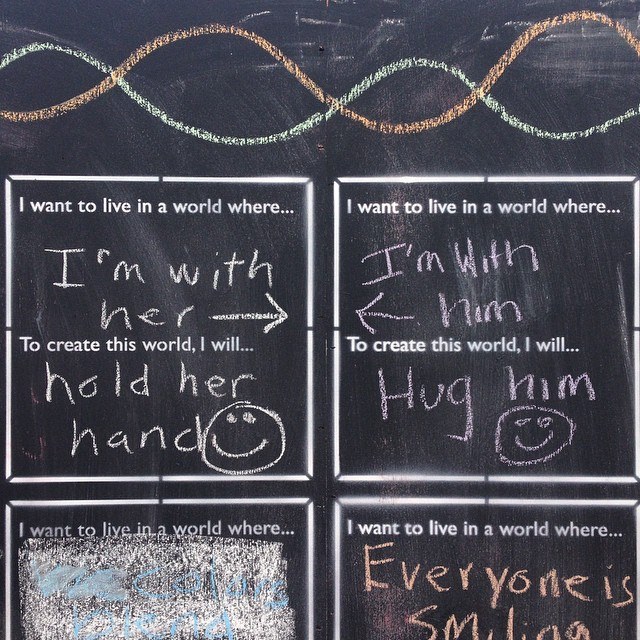 I want to live in a world where...
I'm with
her →
To create this world, I will...
hold her
hand
I want to live in a world where...
I'm with
← him
To create this world, I will...
Hug him
I want to live in a world where...
Colors
I want to live in a world where...
Everyone is
Smiling